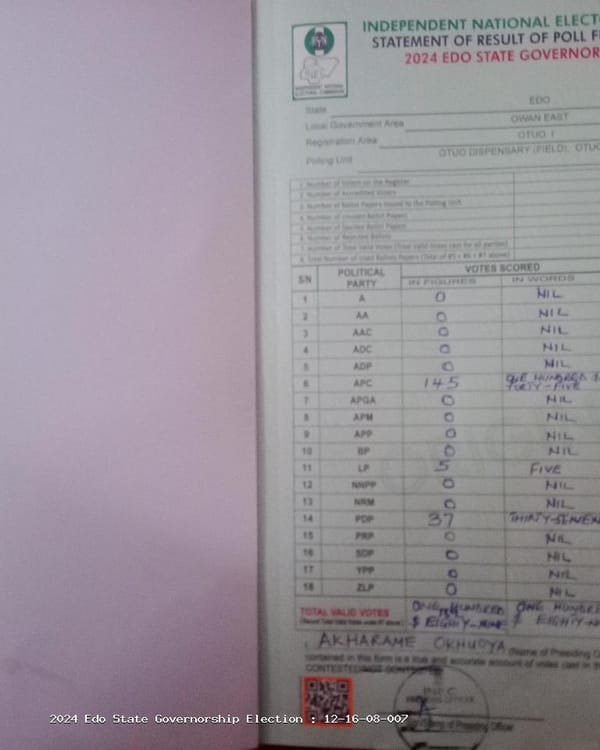 INDEPENDENT NATIONAL ELECT
STATEMENT OF RESULT OF POLL F
2024 EDO STATE GOVERNOR
INDEPENDENT NATIONAL
ELECTORAL COMMISSION
State EDO
Local Government Area OWAN EAST
Registration Area OTUO I
Polling Unit OTUO DISPENSARY (FIELD), OTUO
1. Number of Voters on the Register
2. Number of Accredited Voters
3. Number of Ballot Papers Issued to the Polling Unit
4. Number of Unused Ballot Papers
5. Number of Spoiled Ballot Papers
6. Number of Rejected Ballots
7. Number of Total Valid Votes (Total Valid Votes cast for all parties)
8. Total Number of Used Ballot Papers (Total of #5 + #6 + #7 above)
S/N POLITICAL PARTY VOTES SCORED
IN FIGURES IN WORDS
1 A 0 NIL
2 AA 0 NIL
3 AAC 0 NIL
4 ADC 0 NIL
5 ADP 0 NIL
6 APC 145 ONE HUNDRED $ FORTY-FIVE
7 APGA 0 NIL
8 APM 0 NIL
9 APP 0 NIL
10 BP 0 NIL
11 LP 5 FIVE
12 NNPP 0 NIL
13 NRM 0 NIL
14 PDP 37 THIRTY-SEVEN
15 PRP 0 NIL
16 SDP 0 NIL
17 YPP 0 NIL
18 ZLP 0 NIL
TOTAL VALID VOTES ONE HUNDRED $ EIGHTY-NINE ONE HUNDRED $ EIGHTY-N
I, AKHARAME OKHUOYA (Name of Presiding O
contained in this form is a true and accurate account of votes cast in th
CONTESTED/NOT CONTESTED
INEC
PRESIDING OFFICER
Name of Presiding Officer
2024 Edo State Governorship Election : 12-16-08-007